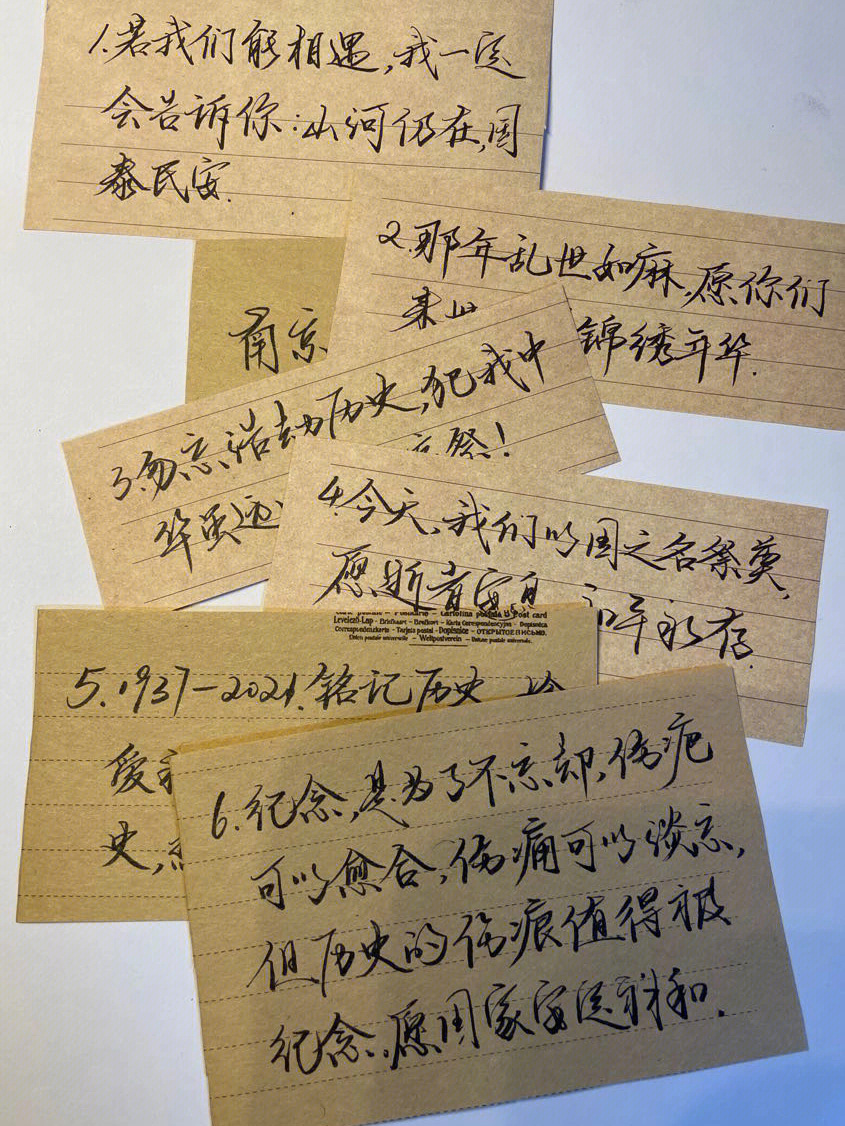 1.若我们能相遇,我一定
会告诉你:山河仍在,国
泰民安.
2.那年乱世如麻,愿你们
来
锦绣年华.
南京
3.勿忘浩劫历史,犯我中
华虽远
祭!
4.今天,我们以国之名祭奠,
愿逝者安息
和平永存.
Carte postale - Postkarte - Cartolina postale - Post card
Levelező-Lap - Briefkaart - Brefkort - Karta Korespondencyjna - Dopisnica
Correspondenzkarte - Tarjeta postal - Dopisnice - ОТКРЫТОЕ ПИСЬМО.
Union postale universelle - Weltpostverein - Union postale universelle.
5.1937-2021.铭记历史
爱
史,
6.纪念,是为了不忘却,伤疤
可以愈合,伤痛可以淡忘,
但历史的伤痕值得被
纪念.愿国家安定祥和.